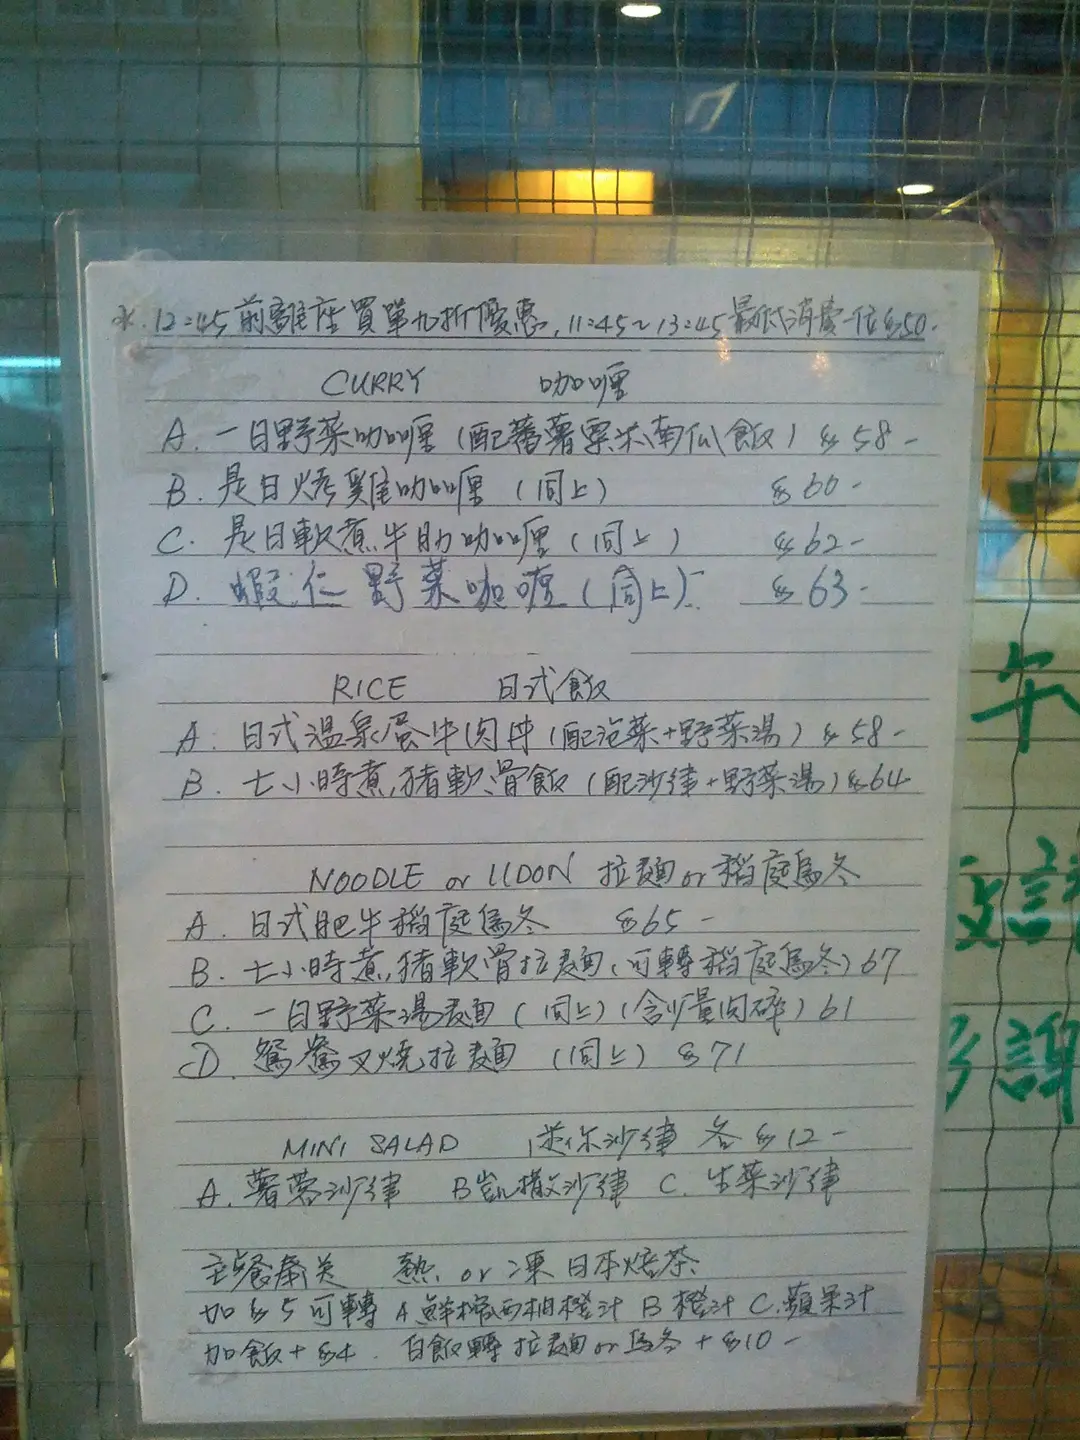 ※. 12:45前離座買單九折優惠, 11:45~13:45最低消費一位$50-
CURRY 咖喱
A. 一日野菜咖喱 (配蕃薯粟米南瓜飯) $58-
B. 是日烤雞咖喱 (同上) $60-
C. 是日軟煮牛肋咖喱 (同上) $62-
D. 蝦仁野菜咖喱 (同上) $63-
RICE 日式飯
A. 日式溫泉蛋牛肉丼 (配泡菜+野菜湯) $58-
B. 七小時煮猪軟骨飯 (配沙律+野菜湯) $64
NOODLE or UDON 拉麵 or 稻庭烏冬
A. 日式肥牛稻庭烏冬 $65-
B. 七小時煮猪軟骨拉麵 (可轉稻庭烏冬) 67
C. 一日野菜湯麵 (同上) (含少量肉碎) 61
D. 鴛鴦叉燒拉麵 (同上) $71
MINI SALAD 迷你沙律 各$12-
A. 薯蓉沙律 B 凱撒沙律 C. 生菜沙律
主餐奉送 熱 or 凍日本焙茶
加$5可轉 A 鮮榨西柚橙汁 B 橙汁 C. 蘋果汁
加飯+$4. 白飯轉拉麵 or 烏冬+$10-
午